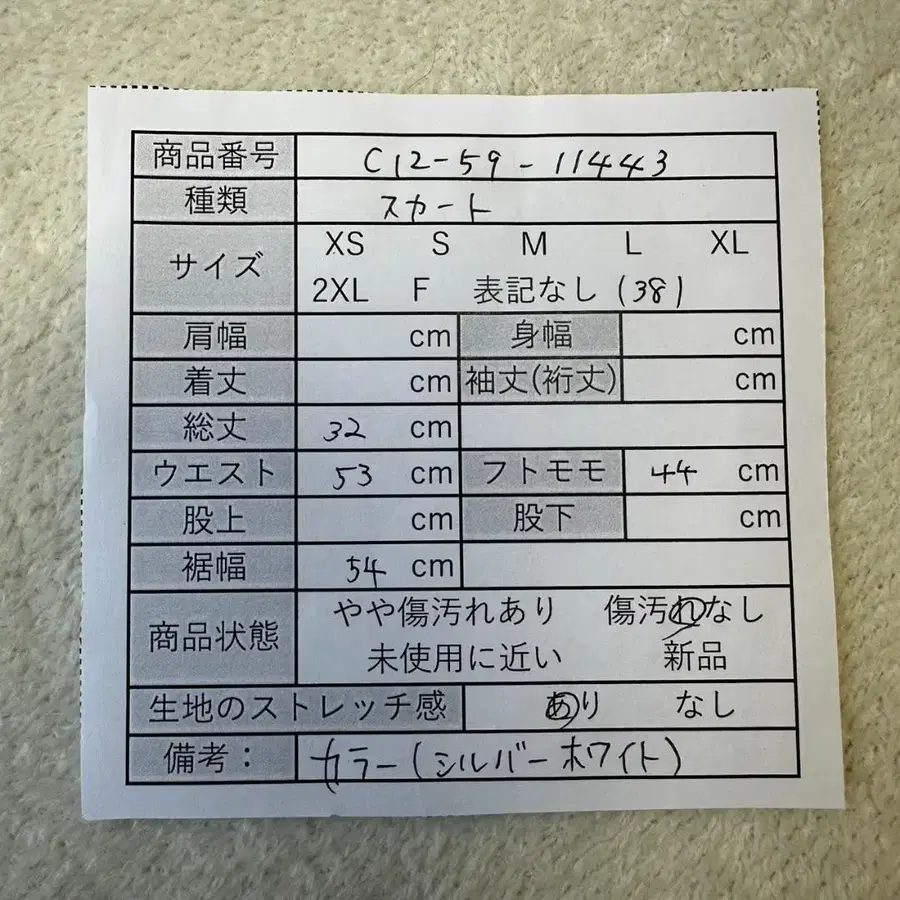 商品番号 C12-59-11443
種類 スカート
サイズ XS S M L XL
2XL F 表記なし (38)
肩幅 cm 身幅 cm
着丈 cm 袖丈(裄丈) cm
総丈 32 cm
ウエスト 53 cm フトモモ 44 cm
股上 cm 股下 cm
裾幅 54 cm
商品状態 やや傷汚れあり 傷汚れなし
未使用に近い 新品
生地のストレッチ感 あり なし
備考： カラー(シルバーホワイト)